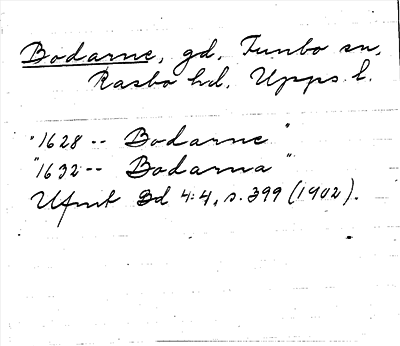 Bodarne, gd, Funbo sn,
Rasbo hd. Upps. l.
"1628 -- Bodarne"
"1632 -- Bodarna"
Ufmt Bd 4:4, s. 399 (1902).